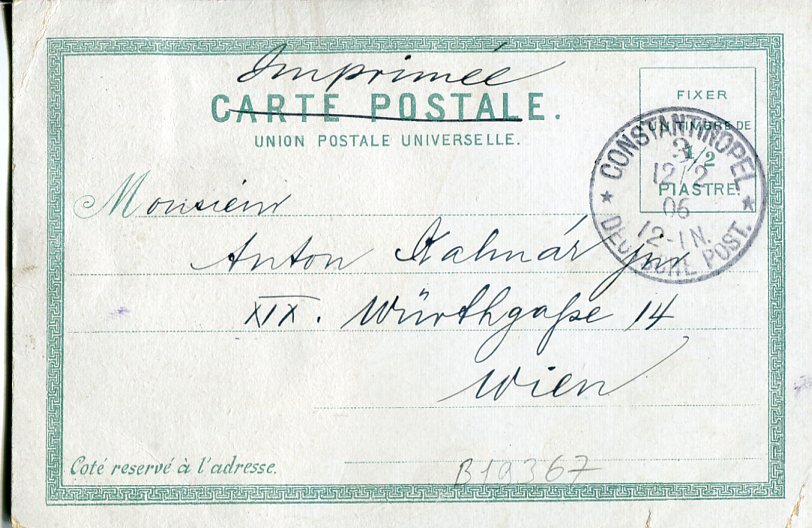 Imprimée
CARTE POSTALE.
UNION POSTALE UNIVERSELLE.
FIXER
UN TIMBRE DE
1/2
PIASTRE.
CONSTANTINOPEL
3
12/2
06
12-1N.
DEUTSCHE POST.
Monsieur
Anton Kalmár jun
XIX. Würthgaße 14
Wien
Coté reservé à l'adresse.
B19367